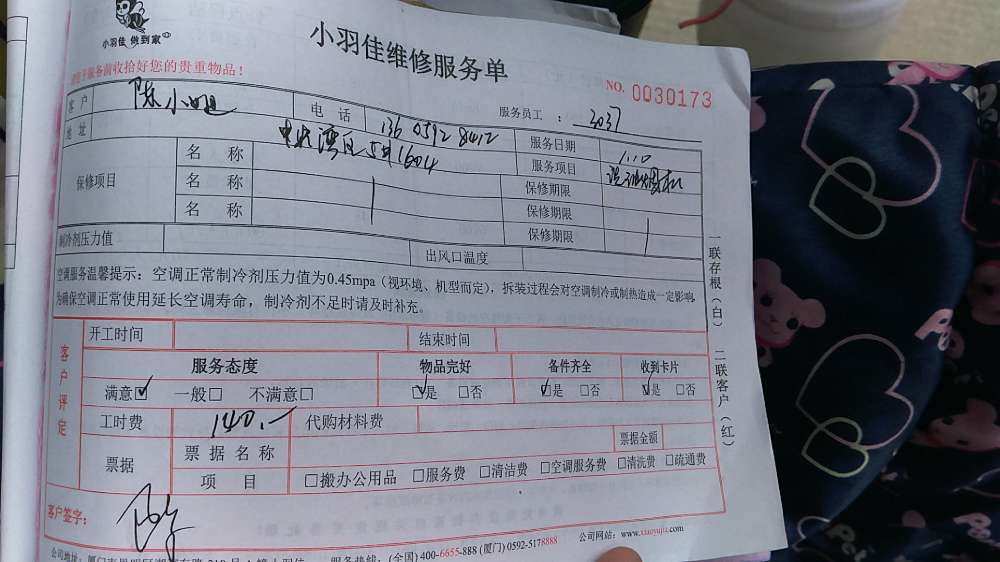 小羽佳 做到家
小羽佳维修服务单
服务前收拾好您的贵重物品！
NO. 0030173
客户 陈小姐 电话 136 0592 8412 服务员工： 3037
地址 中央湾区 1604 服务日期 1.10
保修项目 名称 服务项目 洗油烟机
名称 保修期限
名称 保修期限
保修期限
制冷剂压力值 出风口温度
空调服务温馨提示：空调正常制冷剂压力值为0.45mpa（视环境、机型而定），拆装过程会对空调制冷或制热造成一定影响，
为确保空调正常使用延长空调寿命，制冷剂不足时请及时补充。
客户评定 开工时间 结束时间
服务态度 物品完好 备件齐全 收到卡片
满意☑ 一般□ 不满意□ ☑是 □否 ☑是 □否 ☑是 □否
工时费 140.- 代购材料费
票据 票据名称 票据金额
项目 □搬办公用品 □服务费 □清洁费 □空调服务费 □清洗费 □疏通费
客户签字：
服务热线：(全国) 400-6655-888 (厦门) 0592-5178888 公司网站：www.xiaoyujia.com
一联存根（白） 二联客户（红）